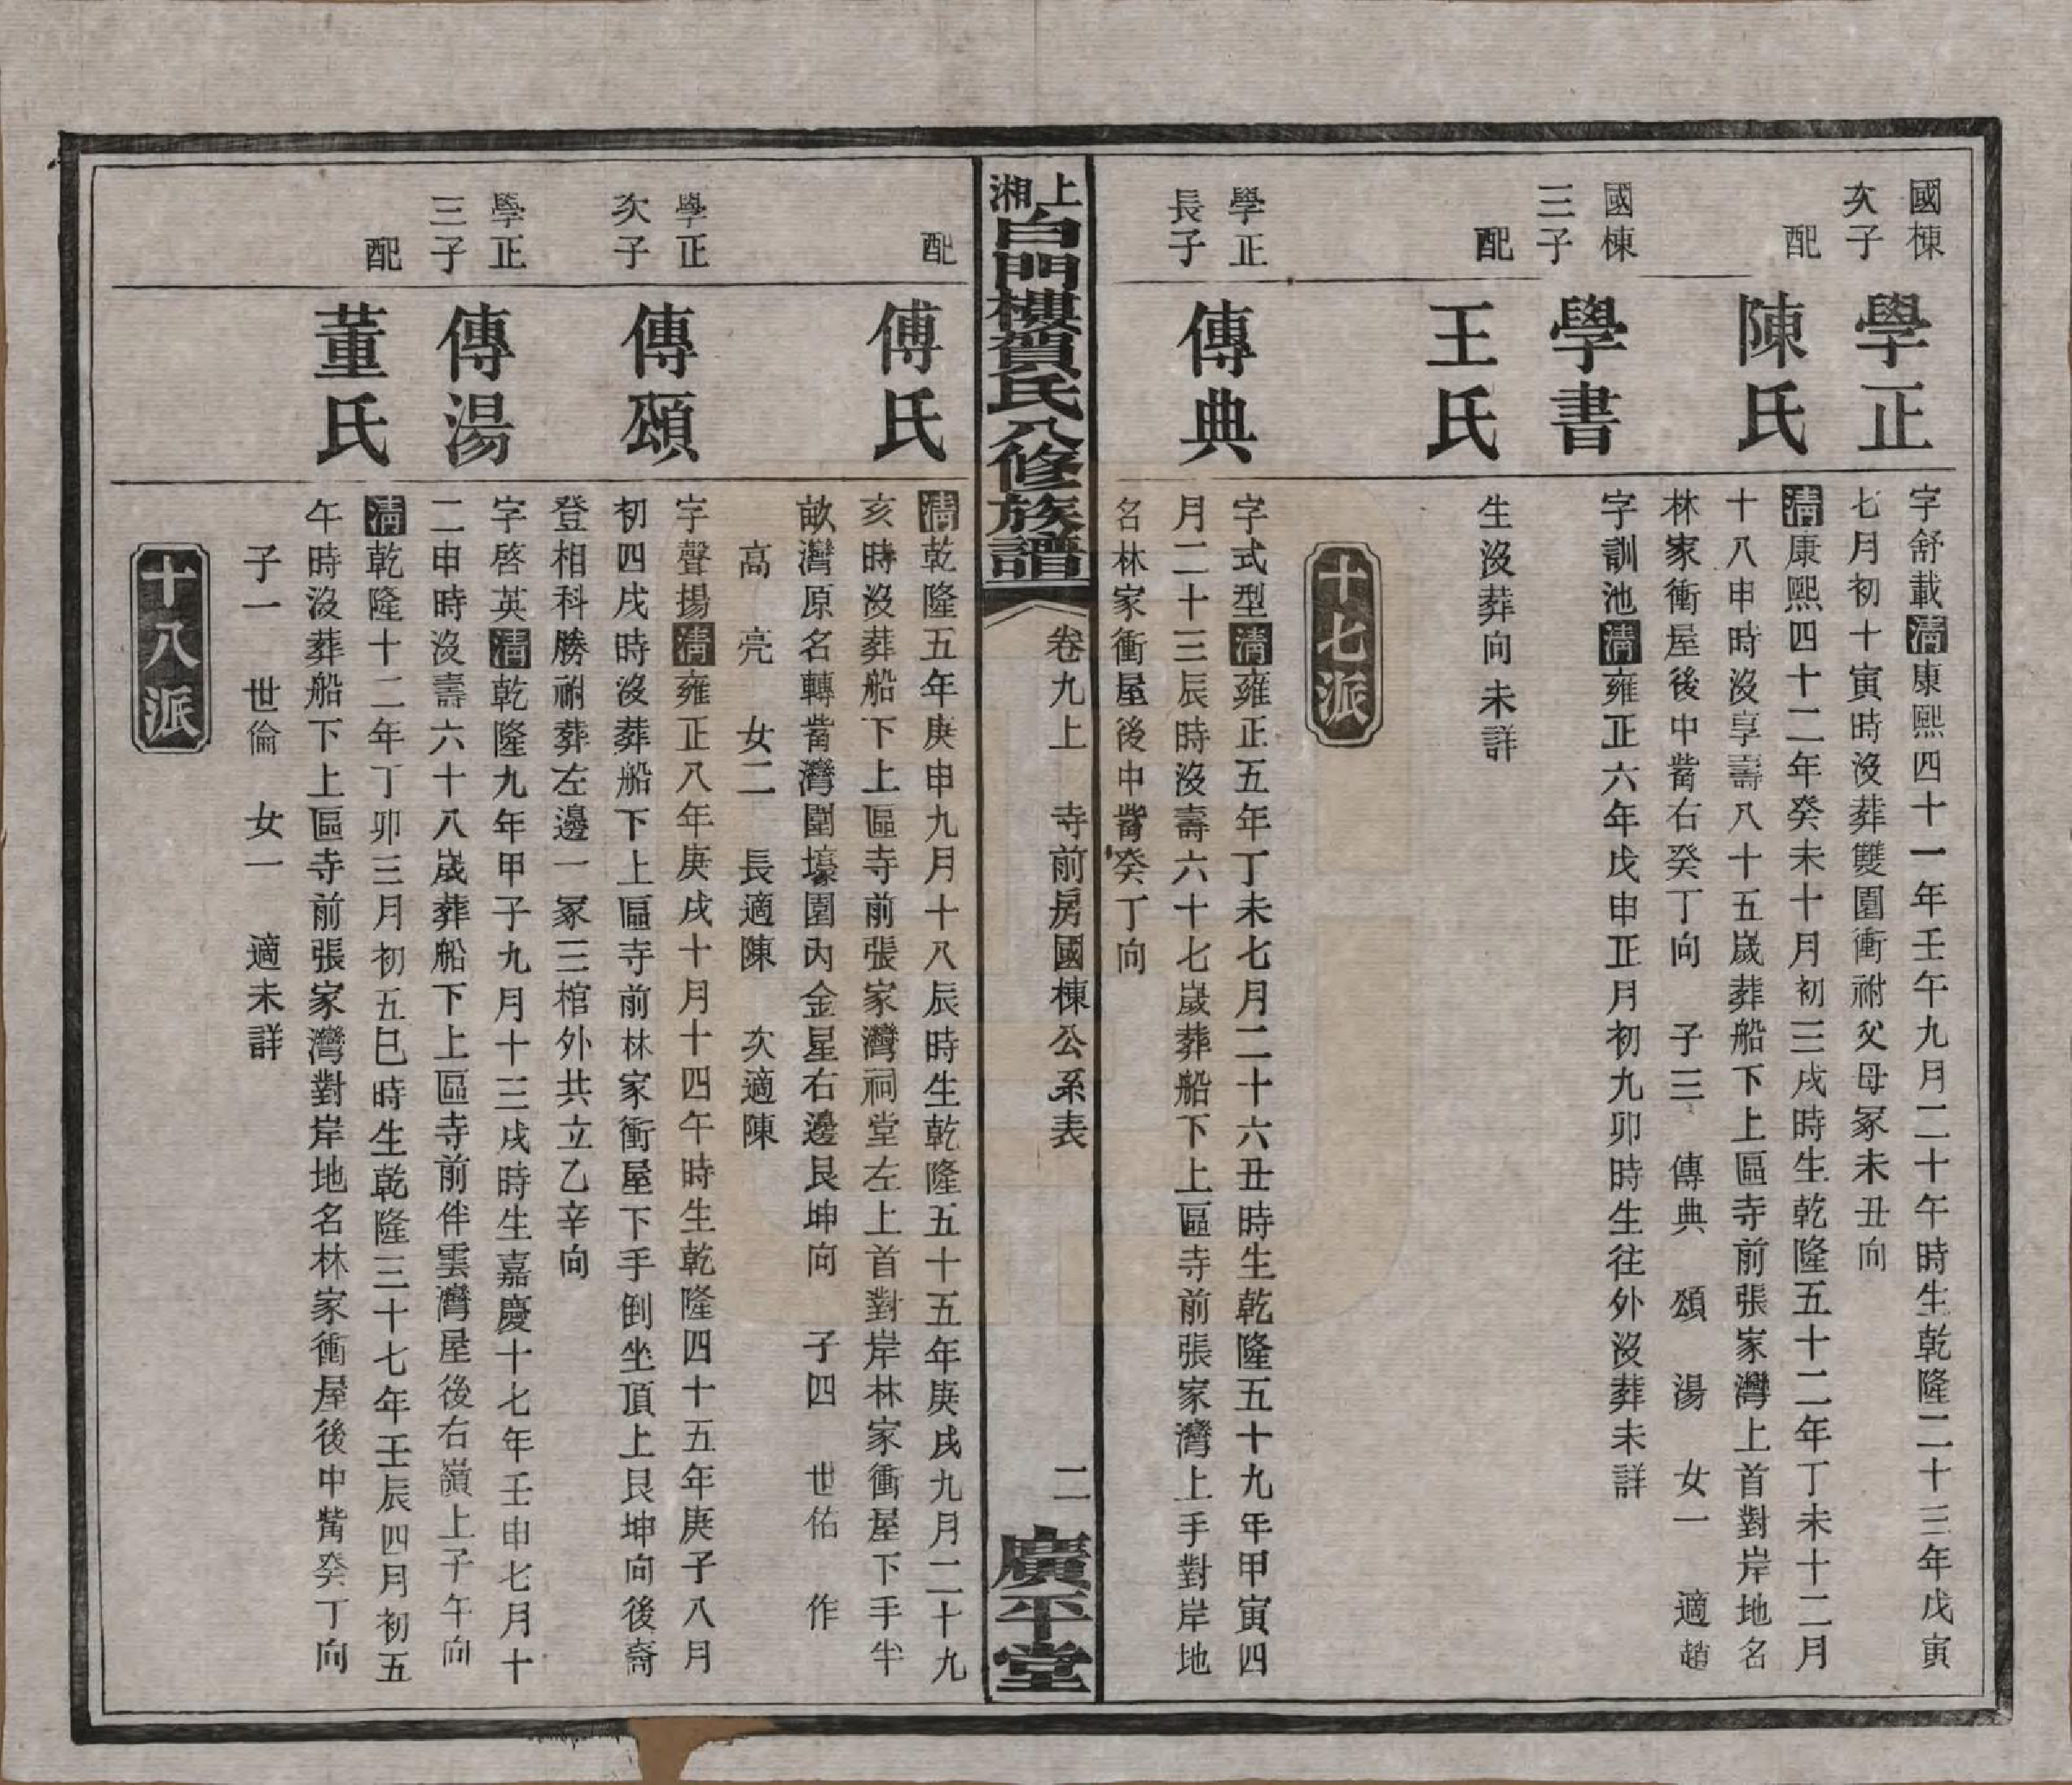 國棟
次子
學正
字舒載清康熙四十一年壬午九月二十午時生乾隆二十三年戊寅
七月初十寅時沒葬雙圍衝祔父母冢未丑向
配
陳氏
清康熙四十二年癸未十月初三戌時生乾隆五十二年丁未十二月
十八申時沒享壽八十五歲葬船下上區寺前張家灣上首對岸地名
林家衝屋後中嘴右癸丁向 子三 傳典 頌 湯 女一 適趙
國棟
三子
學書
字訓池清雍正六年戊申正月初九卯時生往外沒葬未詳
配
王氏
生沒葬向未詳
十七派
學正
長子
傳典
字式型清雍正五年丁未七月二十六丑時生乾隆五十九年甲寅四
月二十三辰時沒壽六十七歲葬船下上區寺前張家灣上手對岸地
名林家衝屋後中嘴癸丁向
上湘白門樓賀氏八修族譜
卷九上 寺前房國棟公系表
二
廣平堂
配
傅氏
清乾隆五年庚申九月十八辰時生乾隆五十五年庚戌九月二十九
亥時沒葬船下上區寺前張家灣祠堂左上首對岸林家衝屋下手半
畝灣原名轉嘴灣圍壕園內金星右邊艮坤向 子四 世佑 作
高 亮 女二 長適陳 次適陳
學正
次子
傳頌
字聲揚清雍正八年庚戌十月十四午時生乾隆四十五年庚子八月
初四戌時沒葬船下上區寺前林家衝屋下手倒坐頂上艮坤向後裔
登相科勝祔葬左邊一冢三棺外共立乙辛向
學正
三子
傳湯
字啓英清乾隆九年甲子九月十三戌時生嘉慶十七年壬申七月十
二申時沒壽六十八歲葬船下上區寺前伴雲灣屋後右嶺上子午向
配
董氏
清乾隆十二年丁卯三月初五巳時生乾隆三十七年壬辰四月初五
午時沒葬船下上區寺前張家灣對岸地名林家衝屋後中嘴癸丁向
子一 世倫 女一 適未詳
十八派